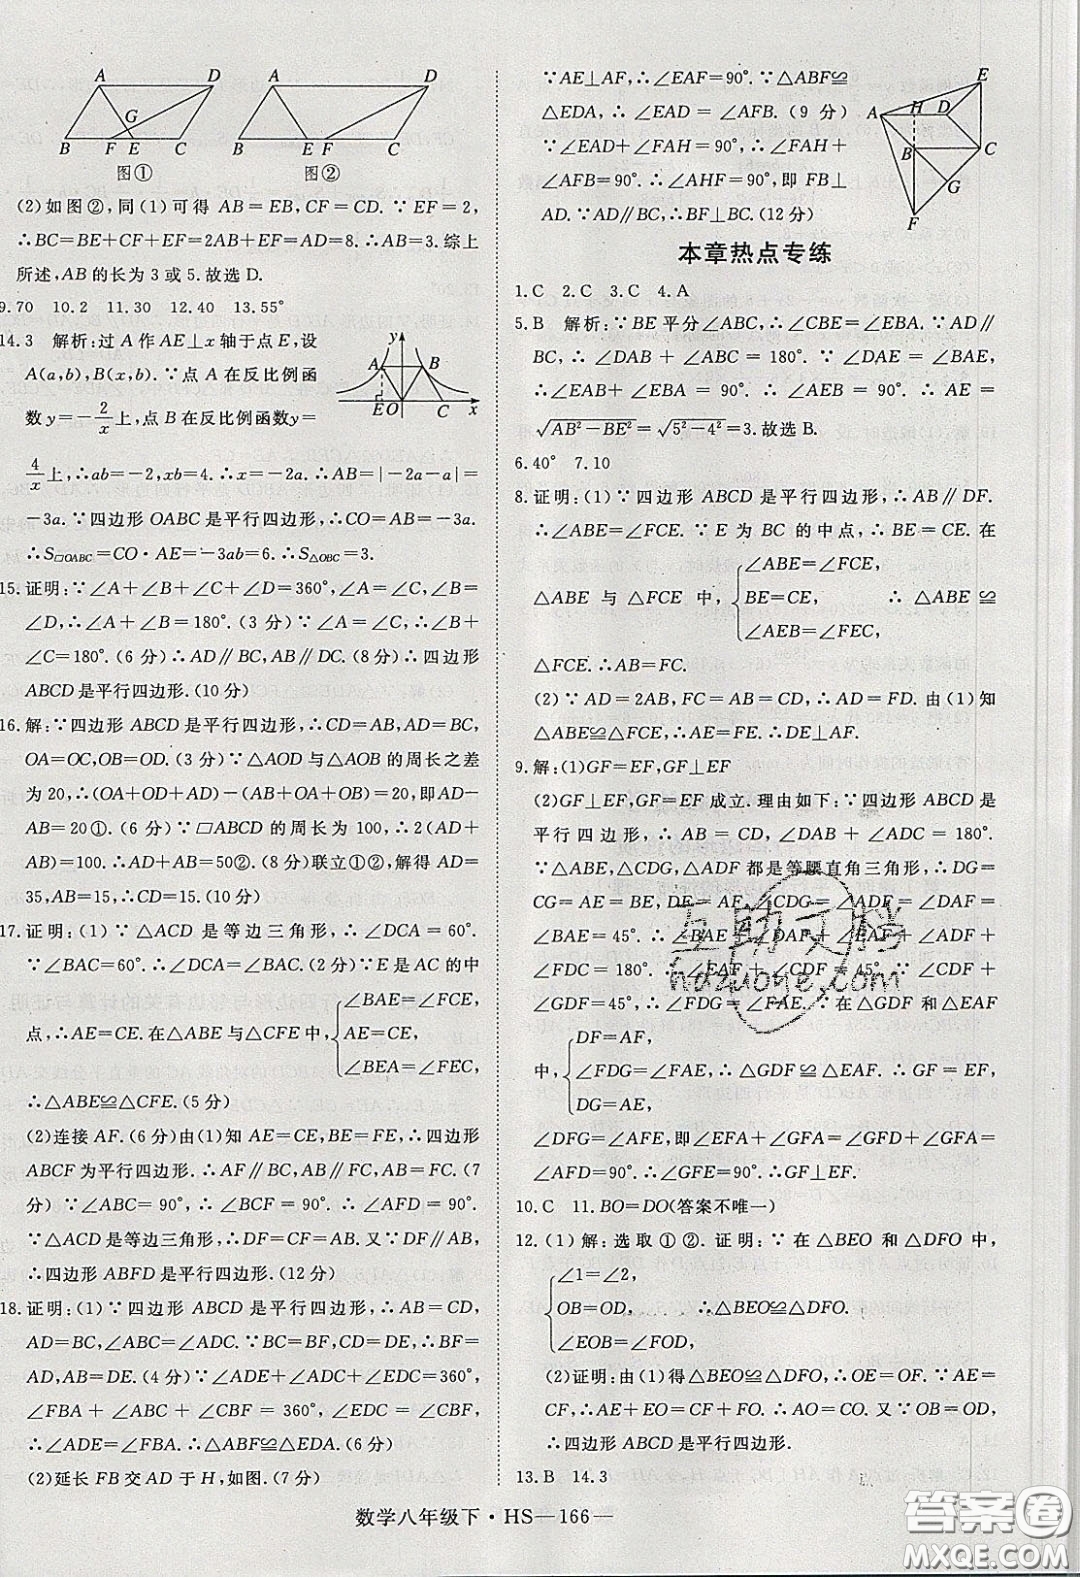 A D
G
B F E C
图①
A D
B E F C
图②
(2)如图②,同(1)可得 AB=EB,CF=CD.∵EF=2,
∴BC=BE+CF+EF=2AB+EF=AD=8.∴AB=3.综上
所述,AB的长为3或5.故选D.
9.70 10.2 11.30 12.40 13.55°
14.3 解析:过A作AE⊥x轴于点E,设
A(a,b),B(x,b).∵点A在反比例函
数y=-2/x上,点B在反比例函数y=
4/x上,∴ab=-2,xb=4.∴x=-2a.∴AB=|-2a-a|=
-3a.∵四边形OABC是平行四边形,∴CO=AB=-3a.
∴S□OABC=CO·AE=-3ab=6.∴S△OBC=3.
y
A B
E O C x
15.证明:∵∠A+∠B+∠C+∠D=360°,∠A=∠C,∠B=
∠D,∴∠A+∠B=180°.(3分)∵∠A=∠C,∴∠B+
∠C=180°.(6分)∴AD∥BC,AB∥DC.(8分)∴四边形
ABCD是平行四边形.(10分)
16.解:∵四边形ABCD是平行四边形,∴CD=AB,AD=BC,
OA=OC,OB=OD.(3分)∵△AOD与△AOB的周长之差
为20,∴(OA+OD+AD)-(AB+OA+OB)=20,即AD-
AB=20①.(6分)∵□ABCD的周长为100,∴2(AD+
AB)=100,∴AD+AB=50②.(8分)联立①②,解得AD=
35,AB=15,∴CD=15.(10分)
17.证明:(1)∵△ACD是等边三角形,∴∠DCA=60°.
∵∠BAC=60°,∴∠DCA=∠BAC.(2分)∵E是AC的中
点,∴AE=CE.在△ABE与△CFE中,
∠BAE=∠FCE,
AE=CE,
∠BEA=∠FEC,
∴△ABE≌△CFE.(5分)
(2)连接AF.(6分)由(1)知AE=CE,BE=FE,∴四边形
ABCF为平行四边形.∴AF∥BC,AB=FC.(7
分)∵∠ABC=90°,∴∠BCF=90°.∴∠AFD=90°.
∵△ACD是等边三角形,∴DF=CF=AB.又∵DF∥AB,
∴四边形ABFD是平行四边形.(12分)
18.证明:(1)∵四边形ABCD是平行四边形,∴AB=CD,
AD=BC,∠ABC=∠ADC.∵BC=BF,CD=DE,∴BF=
AD,AB=DE.(4分)∵∠ADE+∠ADC+∠EDC=360°,
∠FBA+∠ABC+∠CBF=360°,∠EDC=∠CBF,
∴∠ADE=∠FBA.∴△ABF≌△EDA.(6分)
(2)延长FB交AD于H,如图.(7分)
∵AE⊥AF,∴∠EAF=90°.∵△ABF≌
△EDA,∴∠EAD=∠AFB.(9分)
∵∠EAF=90°,∴∠FAH+
∠AFB=90°.∴∠AHF=90°,即FB⊥
AD.∵AD∥BC,∴FB⊥BC.(12分)
E
A H D
B C
G
F
本章热点专练
1.C 2.C 3.C 4.A
5.B 解析:∵BE平分∠ABC,∴∠CBE=∠EBA.∵AD∥
BC,∴∠DAB+∠ABC=180°.∵∠DAE=∠BAE,
∴∠EAB+∠EBA=90°.∴∠AEB=90°.∴AE=
√AB²-BE²=√5²-4²=3.故选B.
6.40° 7.10
8.证明:(1)∵四边形ABCD是平行四边形,∴AB∥DF.
∴∠ABE=∠FCE.∵E为BC的中点,∴BE=CE.在
△ABE与△FCE中,
∠ABE=∠FCE,
BE=CE,
∠AEB=∠FEC,
∴△ABE≌
△FCE.∴AB=FC.
(2)∵AD=2AB,FC=AB=CD,∴AD=FD.由(1)知
△ABE≌△FCE,∴AE=FE.∴DE⊥AF.
9.解:(1)GF=EF,GF⊥EF
(2)GF⊥EF,GF=EF成立.理由如下:∵四边形ABCD是
平行四边形,∴AB=CD,∠DAB+∠ADC=180°.
∵△ABE,△CDG,△ADF都是等腰直角三角形,∴DG=
CG=AE=BE,DF=AF,∠CDG=∠ADF=∠DAF=
∠BAE=45°.∴∠BAE+∠DAF+∠EAF+∠ADF+
∠FDC=180°.∴∠EAF+∠CDF=45°.∵∠CDF+
∠GDF=45°,∴∠FDG=∠FAE.∵在△GDF和△EAF
中,
DF=AF,
∠FDG=∠FAE,
DG=AE,
∴△GDF≌△EAF.∴GF=EF,
∠DFG=∠AFE,即∠EFA+∠GFA=∠GFD+∠GFA=
∠AFD=90°.∴∠GFE=90°.∴GF⊥EF.
10.C 11.BO=DO(答案不唯一)
12.(1)解:选取①②.证明:∵在△BEO和△DFO中,
∠1=∠2,
OB=OD,
∠EOB=∠FOD,
∴△BEO≌△DFO.
(2)证明:由(1)得△BEO≌△DFO,∴EO=FO.∵AE=
CF,∴AE+EO=CF+FO.∴AO=CO.又∵OB=OD,
∴四边形ABCD是平行四边形.
13.B 14.3
数学八年级下·HS—166—
互助文档
hazuoye.com
答案圈
MXQE.COM